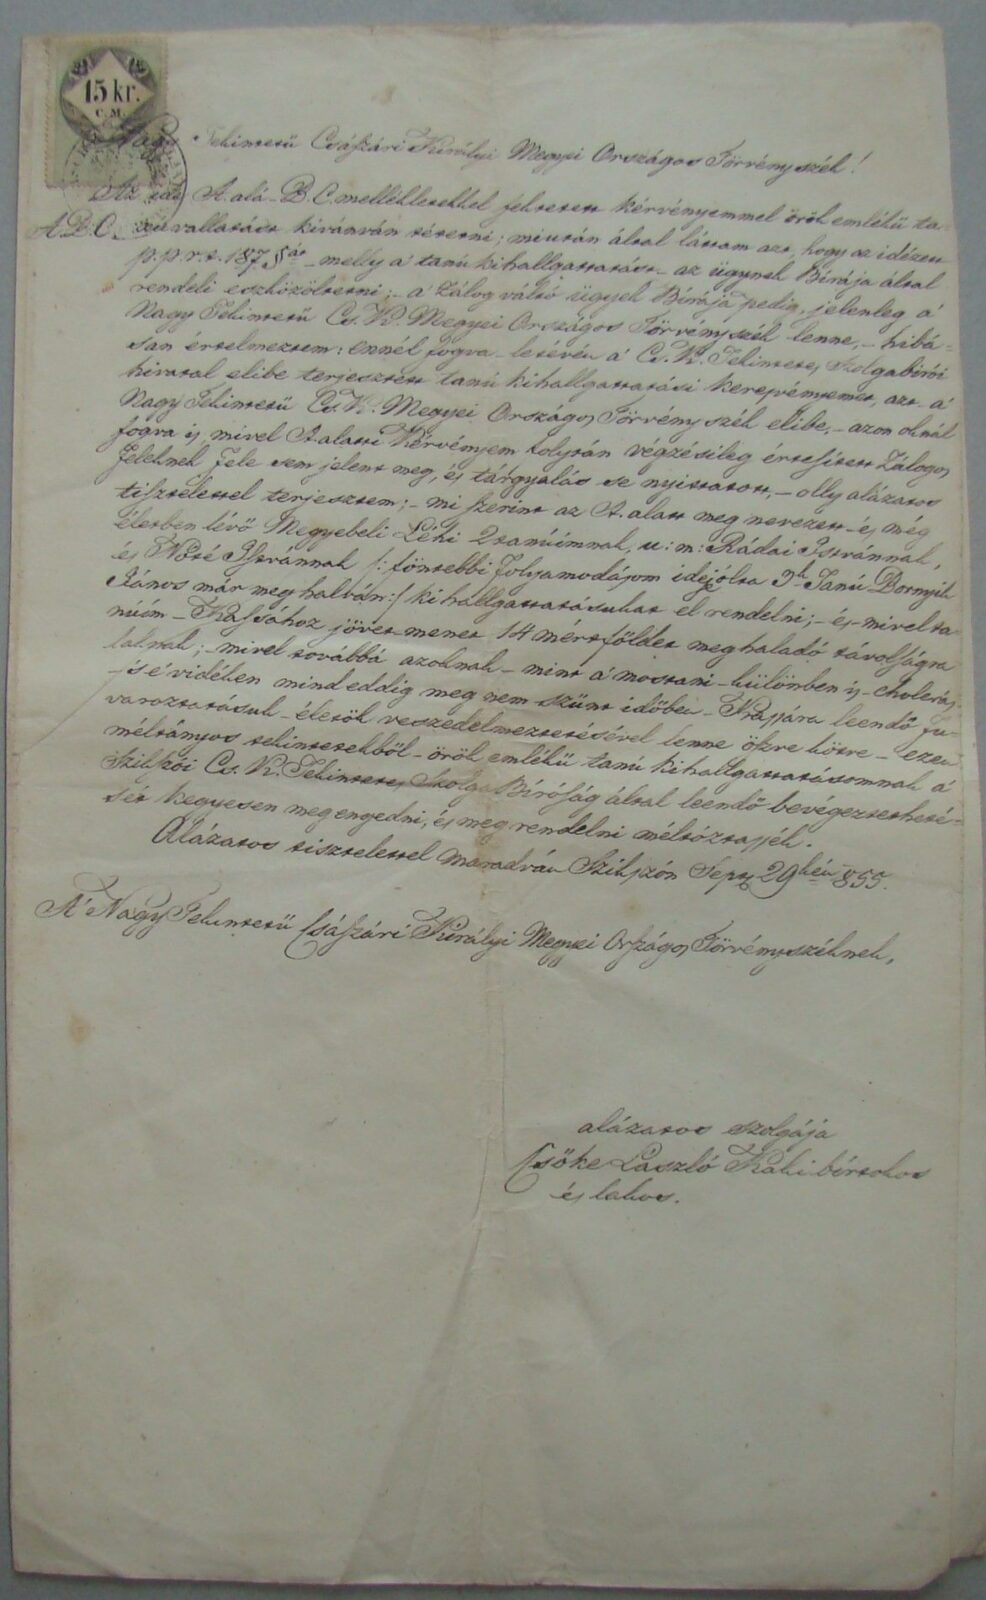 15 kr.
C.M.
Nagy Tekintetü Császári Királyi Megyei Országos Törvényszék!
Az ide A. alá B. C. mellékletekkel feltetett kérvényemmel örök emlékü ta-
A. B. C. núvallatást kivánván tétetni; miután által láttam azt, hogy az idézett
p. p. r. t. 187 §át melly a' tanú kihallgattatást az ügynek Birája által
rendeli eszközöltetni; a' Zálog váltó ügyek Birája pedig, jelenleg a'
Nagy Tekintetü Cs. K. Megyei Országos Törvényszék lenne, hibá-
san értelmeztem: ennél fogva letévén a' Cs. K. Tekintetes Szolgabirói
hivatal elibe terjesztett tanú kihallgattatási keresvényemet, azt a'
Nagy Tekintetü Cs. K. Megyei Országos Törvényszék elibe, azon oknál
fogva is, mivel A. alatti Kérvényem folytán végzésileg értesitett Zálogos
Feleknek fele sem jelent meg, és tárgyalás se nyittatott, olly alázatos
tisztelettel terjesztem; mi szerint az A. alatt meg nevezett és még
életben lévő Megyebeli Léhi 2 tanúimnak, u: m: Rádai Istvánnak,
és Nóté Istvánnak /: föntebbi folyamodásom idejólta 3k Tanú Bornyik
János már meg halván :/ kihallgattatásukat el rendelni; és mivel ta-
núim Kassához jövet menet 14 mértföldet meghaladó távolságra
laknak; mivel továbbá azoknak mint a' mostani különben is cholerás
s e' vidéken mind eddig meg nem szünt időben Kassára leendő fu-
varoztatásuk életök veszedelmeztetésével lenne öszve kötve ezen
méltányos tekintetekböl örök emlékü tanú kihallgattatásomnak a'
Szikszói Cs. K. Tekintetes Szolga Biróság által leendő bevégeztetheté-
sét kegyesen megengedni, és megrendelni méltóztassék.
Alázatos tisztelettel maradván Szikszón Sept 29kén 855.
A' Nagy Tekintetü Császári Királyi Megyei Országos Törvényszéknek,
alázatos szolgája
Csőke László Kaki birtokos
és lakos.